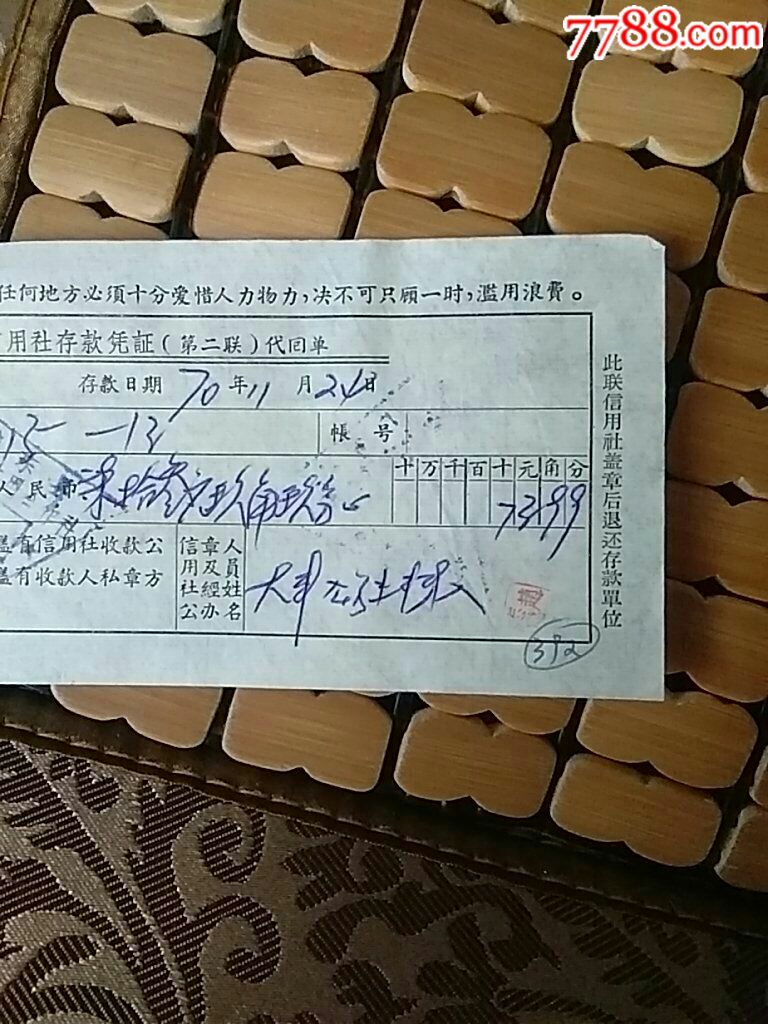 7788.com
任何地方必须十分爱惜人力物力，决不可只顾一时，滥用浪费。
用社存款凭証（第二联）代回单
存款日期 70年11月24日
帳号
人民币 柒拾叁元玖角玖分
十万千百十元角分
7399
盖有信用社收款公
盖有收款人私章方
信章人
用及員
社經姓
公办名
392
此联信用社盖章后退还存款單位